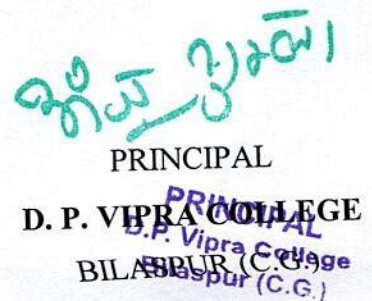 PRINCIPAL
D. P. VIPRA COLLEGE
BILASPUR (C.G.)
PRINCIPAL
D.P. Vipra College
Bilaspur (C.G.)